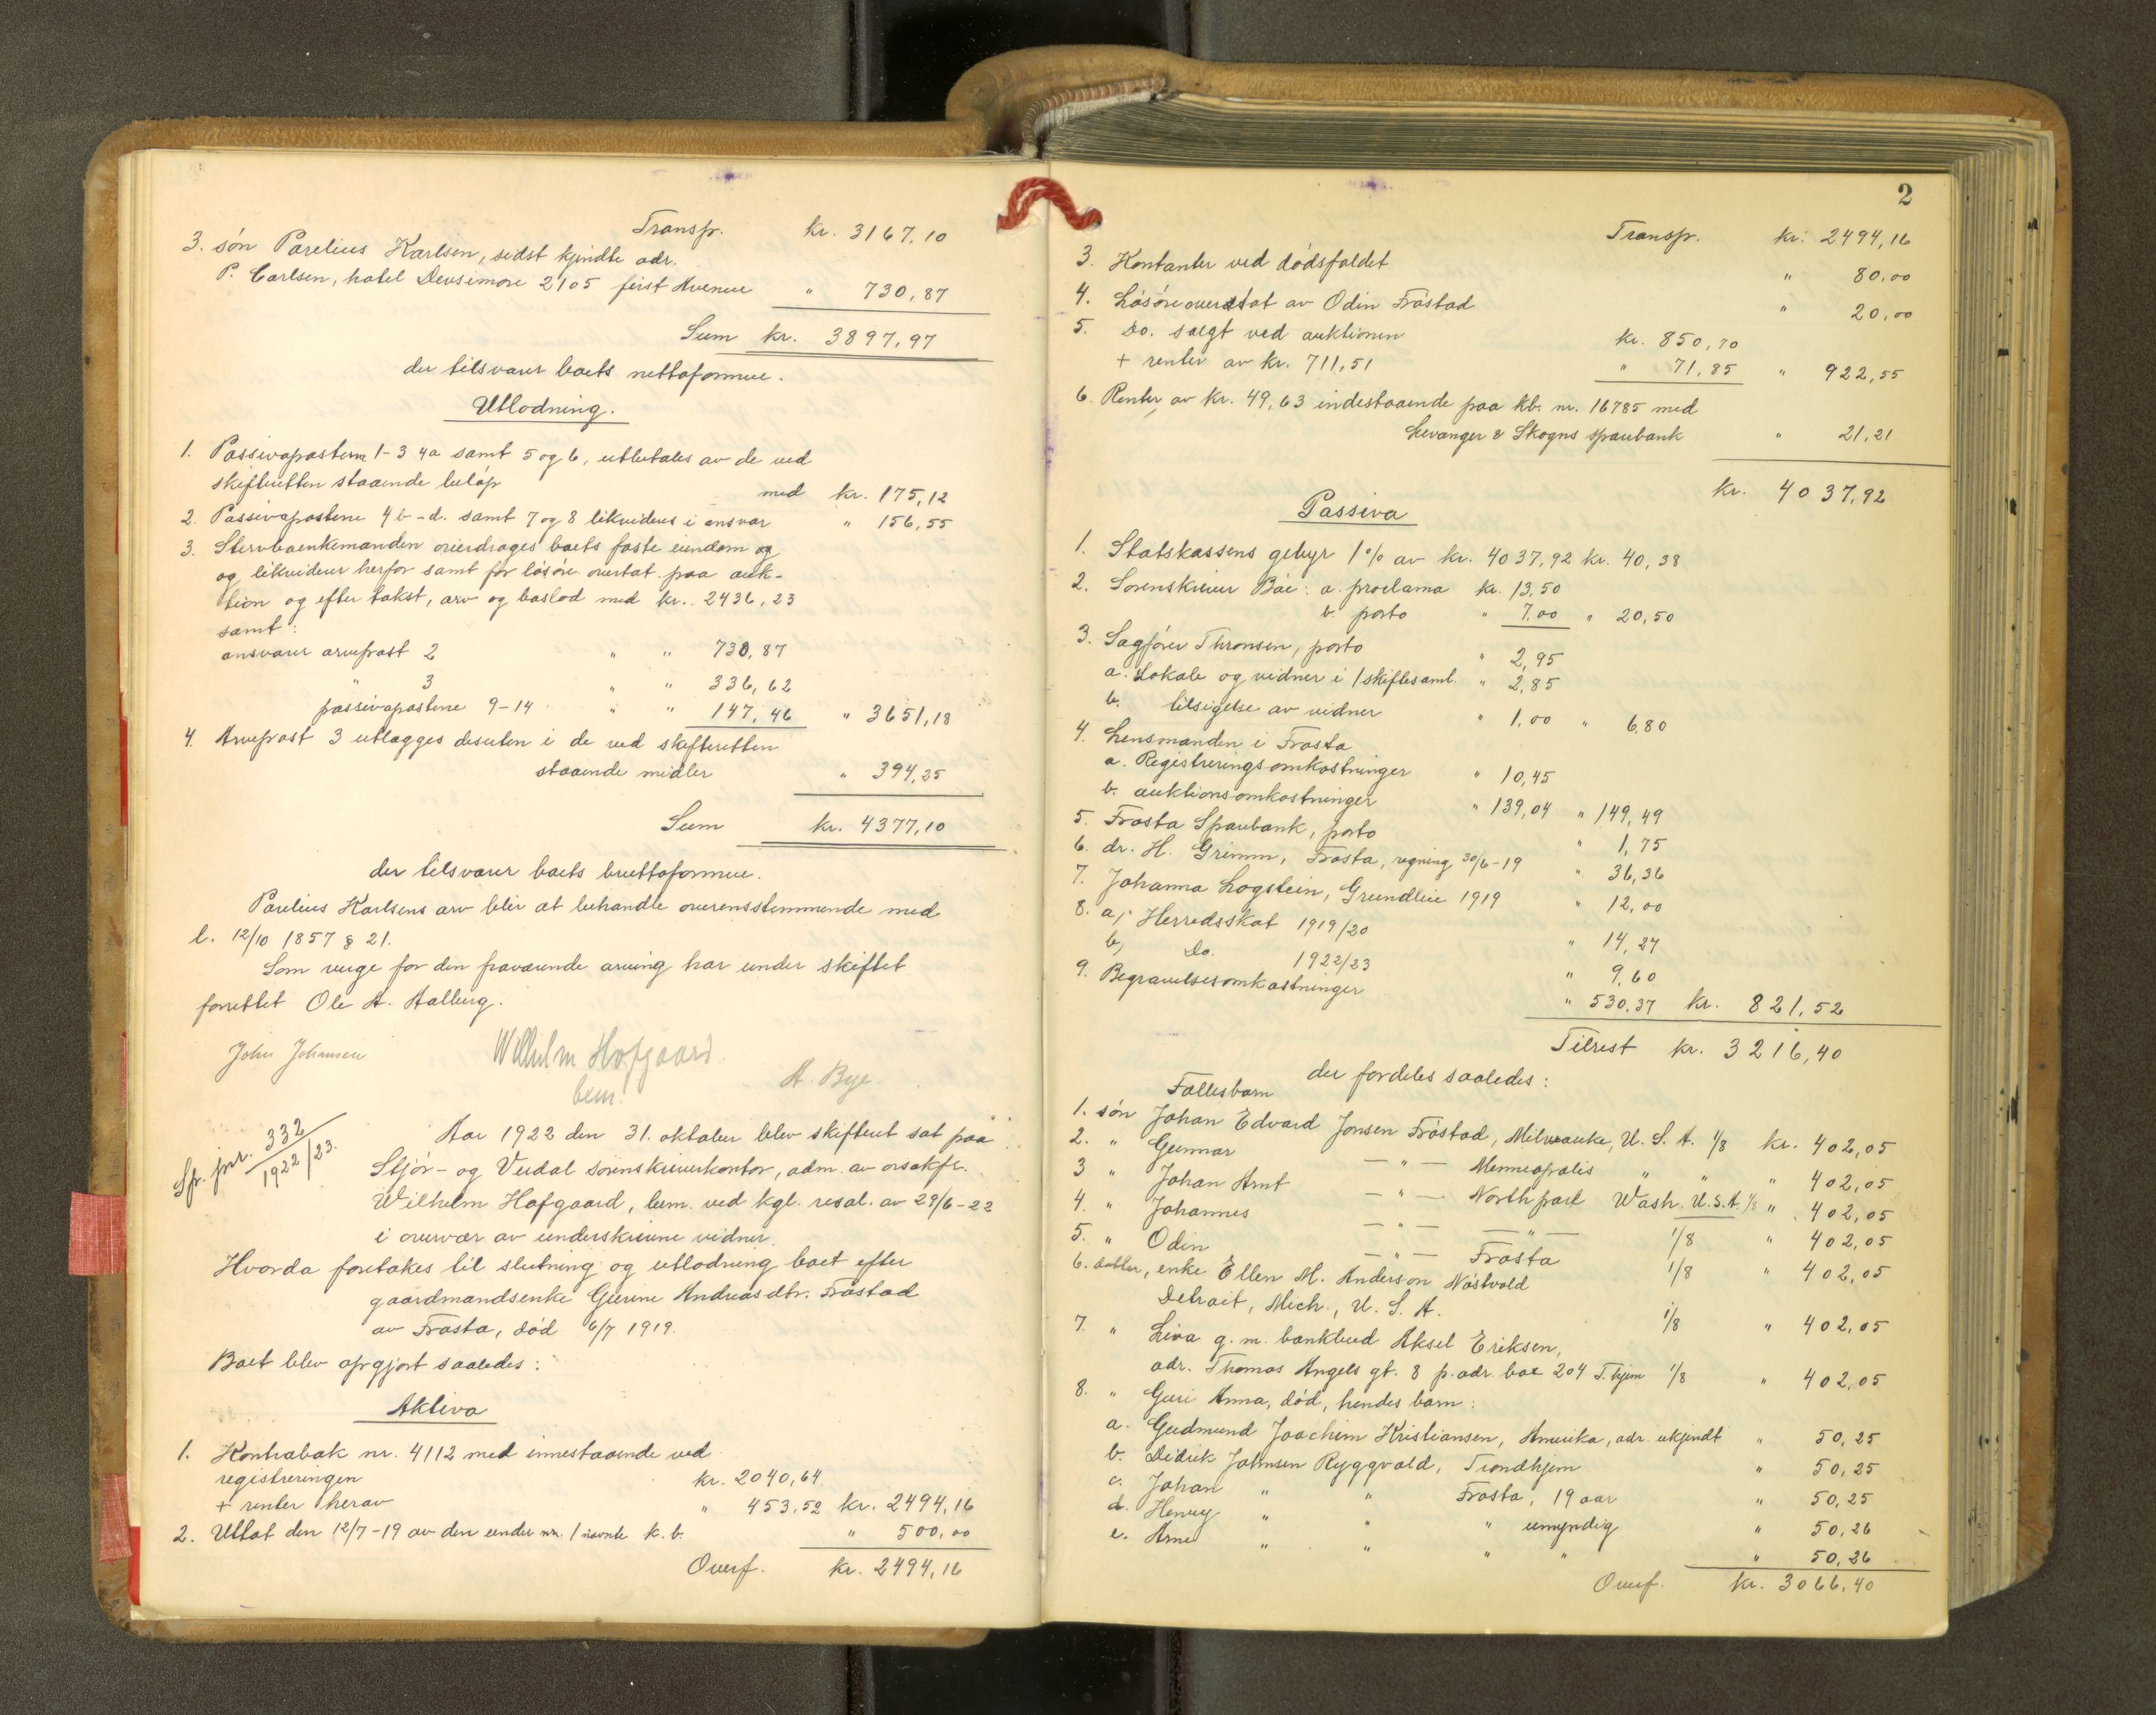 Transp. kr. 3167,10
3. søn Parelius Karlsen, sidst kjendte adr.
P. Carlsen, hotel Devsimore 2105 first Avenue " 730,87
Sum kr. 3897,97
der tilsvarer boets nettoformue.
Utlodning.
1. Passivaposterne 1-3 4a samt 5 og 6, utbetales av de ved
skifteretten staaende beløp med kr. 175,12
2. Passivapostene 4b-d. samt 7 og 8 likvideres i ansvar " 156,55
3. Stervboenkemanden overdrages boets faste eiendom og
og likviderer herfor samt for løsøre overtat paa auk-
tion og efter takst, arv og boslod med kr. 2436,23
samt:
ansvarer arvepost 2 " " 730,87
" 3 " " 336,62
passivapostene 9-14 " " 147,46 " 3651,18
4. Arvepost 3 utlægges desuten i de ved skifteretten
staaende midler " 394,25
Sum kr. 4377,10
der tilsvarer boets bruttoformue.
Parelius Karlsens arv blir at behandle overensstemmende med
l. 12/10 1857 § 21.
Som verge for den fraværende arving har under skiftet
forrettet Ole A. Aalberg.
John Johansen Wilhelm Hofgaard A. Bye
bem.
Sp. jnr. 332
1922/23.
Aar 1922 den 31. oktober blev skifteret sat paa
Stjør- og Verdal sorenskriverkontor, adm. av orsakfr.
Wilhelm Hofgaard, bem. ved kgl. resol. av 29/6-22
i overvær av underskrivne vidner.
Hvorda foretokes til slutning og utlodning boet efter
gaardmandsenke Gurine Andreasdtr. Frøstad
av Frosta, død 6/7 1919.
Boet blev opgjort saaledes:
Aktiva
1. Kontrabok nr. 4112 med innestaaende ved
registreringen kr. 2040,64
+ renter herav " 453,52 kr. 2494,16
2. Uttat den 12/7-19 av den under nr. 1 nævnte k.b. " 500,00
Overf. kr. 2494,16
2
Transp. kr. 2494,16
3. Kontanter ved dødsfaldet " 80,00
4. Løsøre overtat av Odin Frøstad " 20,00
5. Do. solgt ved auktionen kr. 850,70
+ renter av kr. 711,51 " 71,85 " 922,55
6. Renter av kr. 49,63 indestaaende paa kb. nr. 16785 med
Levanger & Skogns sparebank " 21,21
kr. 4037,92
Passiva
1. Statskassens gebyr 1% av kr. 4037,92 kr. 40,38
2. Sorenskriver Bae: a. proclama kr. 13,50
b. porto " 7,00 " 20,50
3. Sagfører Thronsen, porto " 2,95
a. Lokale og vidner i 1 skiftesaml. " 2,85
b. tilsigelse av vidner " 1,00 " 6,80
4. Lensmanden i Frosta
a. Registreringsomkostninger " 10,45
b. auktionsomkostninger " 139,04 " 149,49
5. Frosta Sparebank, porto " 1,75
6. dr. H. Grimm, Frosta, regning 30/6-19 " 36,36
7. Johanna Logstein, Grundleie 1919 " 12,00
8. a, Herredsskat 1919/20 " 14,27
b, Do. 1922/23 " 9,60
9. Begravelsesomkostninger " 530,37 kr. 821,52
Tilrest kr. 3216,40
der fordeles saaledes:
Fællesbarn
1. søn Johan Edvard Jonsen Frøstad, Milwauke, U.S.A. 1/8 kr. 402,05
2. " Gunnar — " — Menneapolis " " " 402,05
3 " Johan Arnt — " — Northport Wash. U.S.A. 1/8 " 402,05
4. " Johannes — " — — " — 1/8 " 402,05
5. " Odin — " — Frosta 1/8 " 402,05
6. datter, enke Ellen M. Anderson Nøstvold
Detroit, Mich., U.S.A. 1/8 " 402,05
7. " Liva g.m. bankbud Aksel Eriksen,
adr. Thomas Angels gt. 8 p.adr. box 204 T.hjem 1/8 " 402,05
8. " Guri Anna, død, hendes barn:
a. Gudmund Joachim Kristiansen, Amerika, adr. ukjendt " 50,25
b. Didrik Johnsen Ryggvold, Trondhjem " 50,25
c. Johan " " Frosta, 19 aar " 50,25
d. Henry " " " umyndig " 50,26
e. Arne " " " " " 50,26
Overf. kr. 3066,40